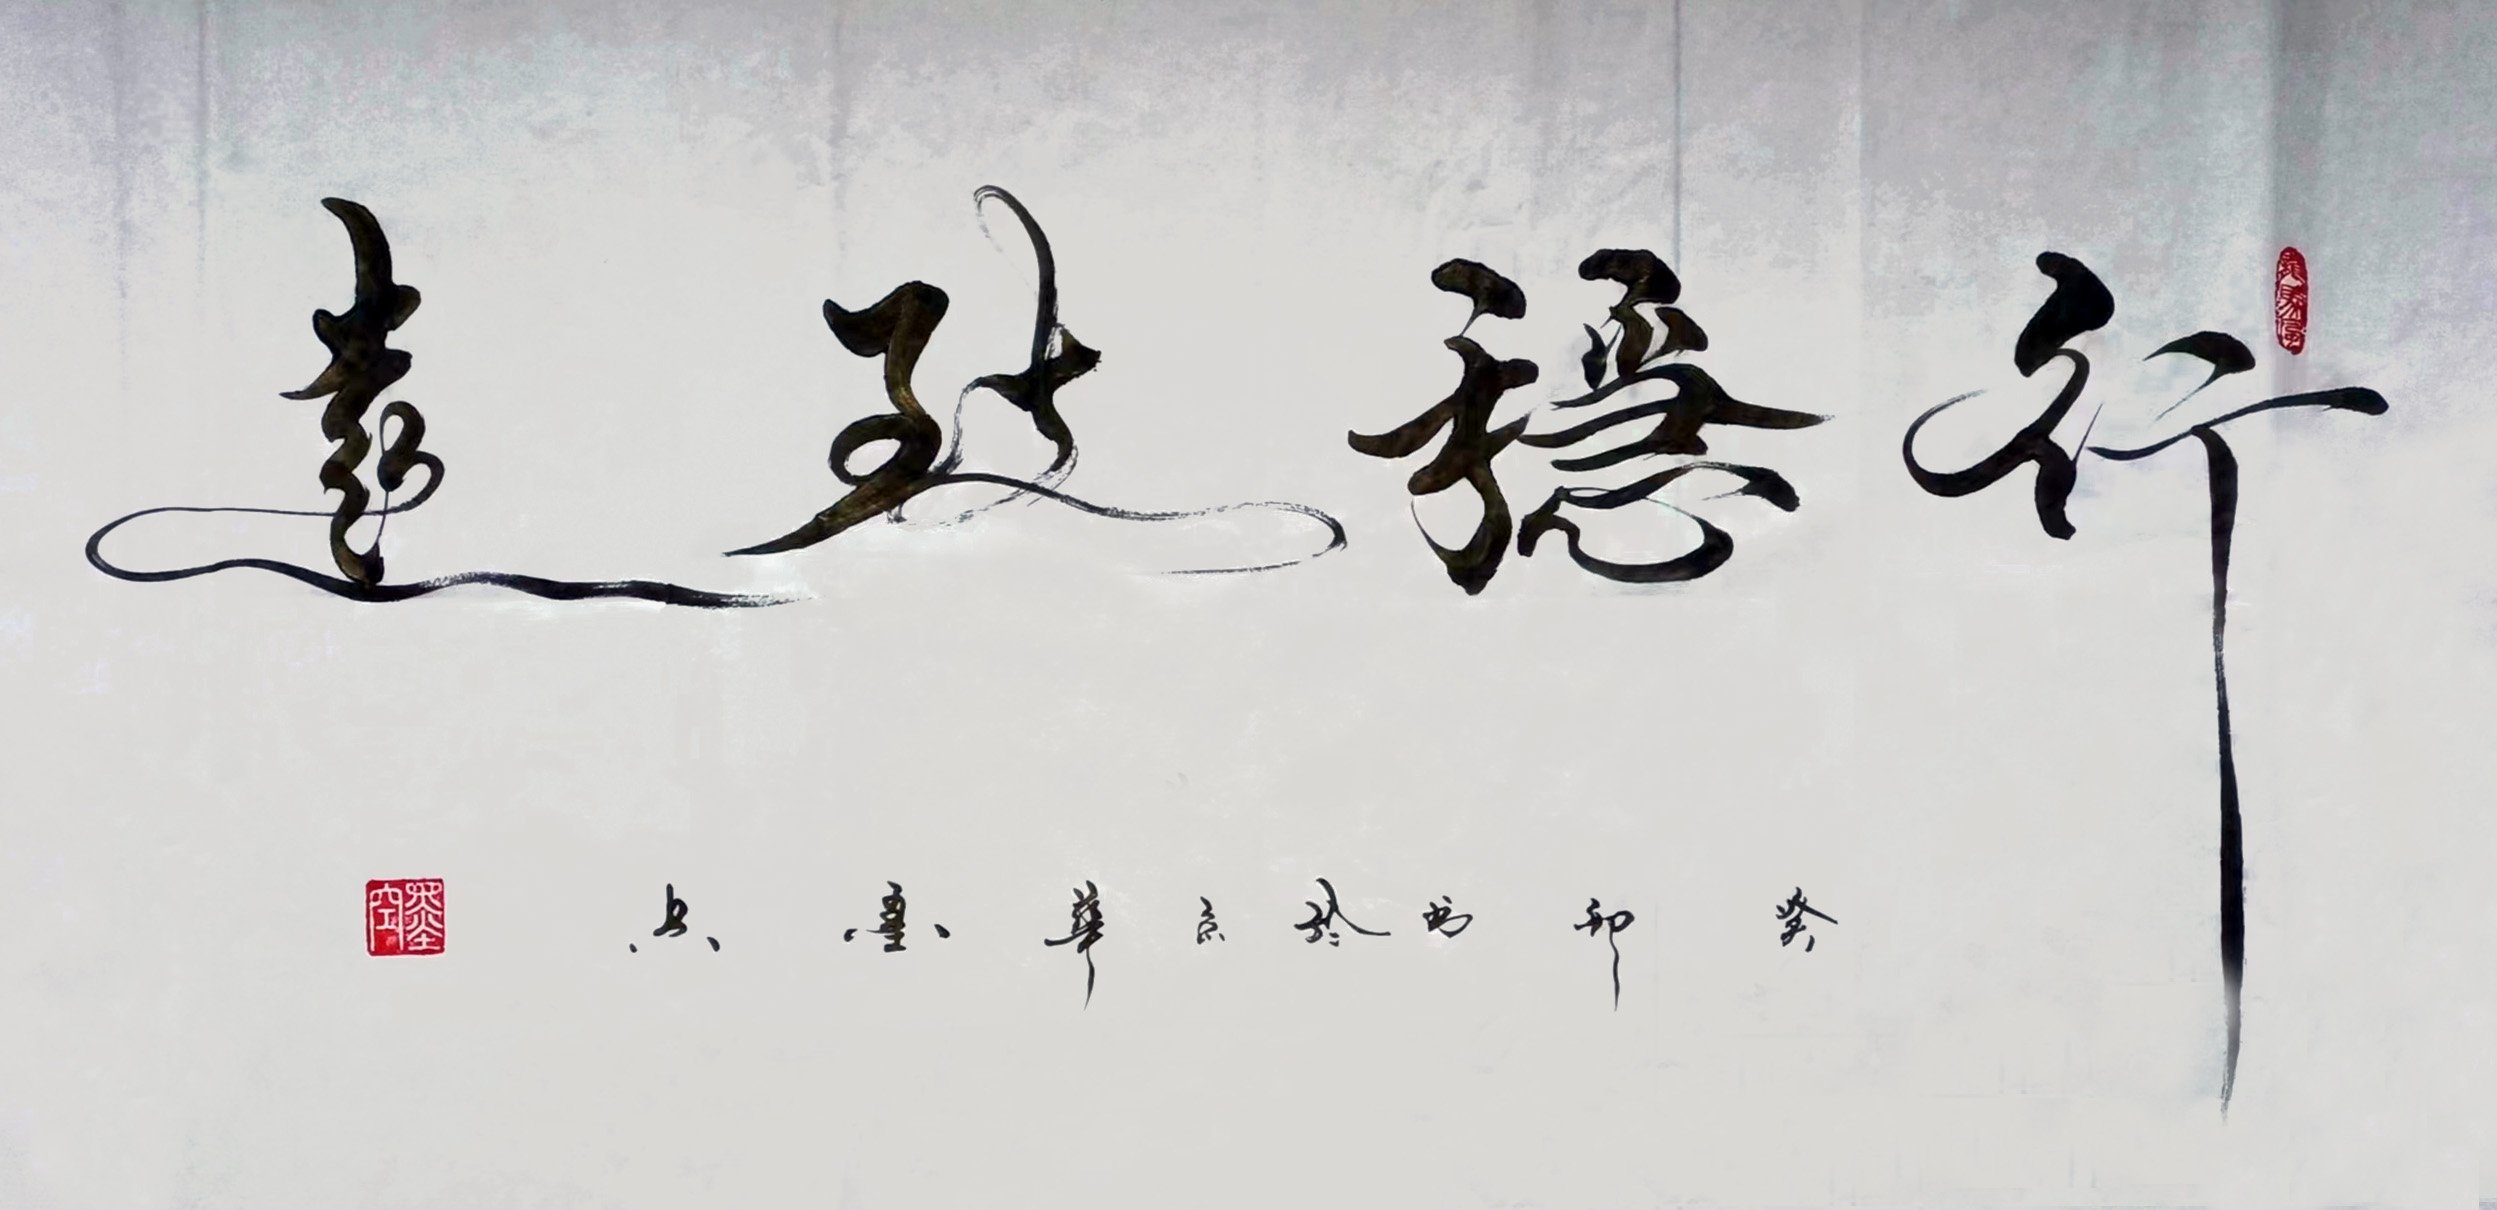 行穩致遠
癸卯書於京華墨